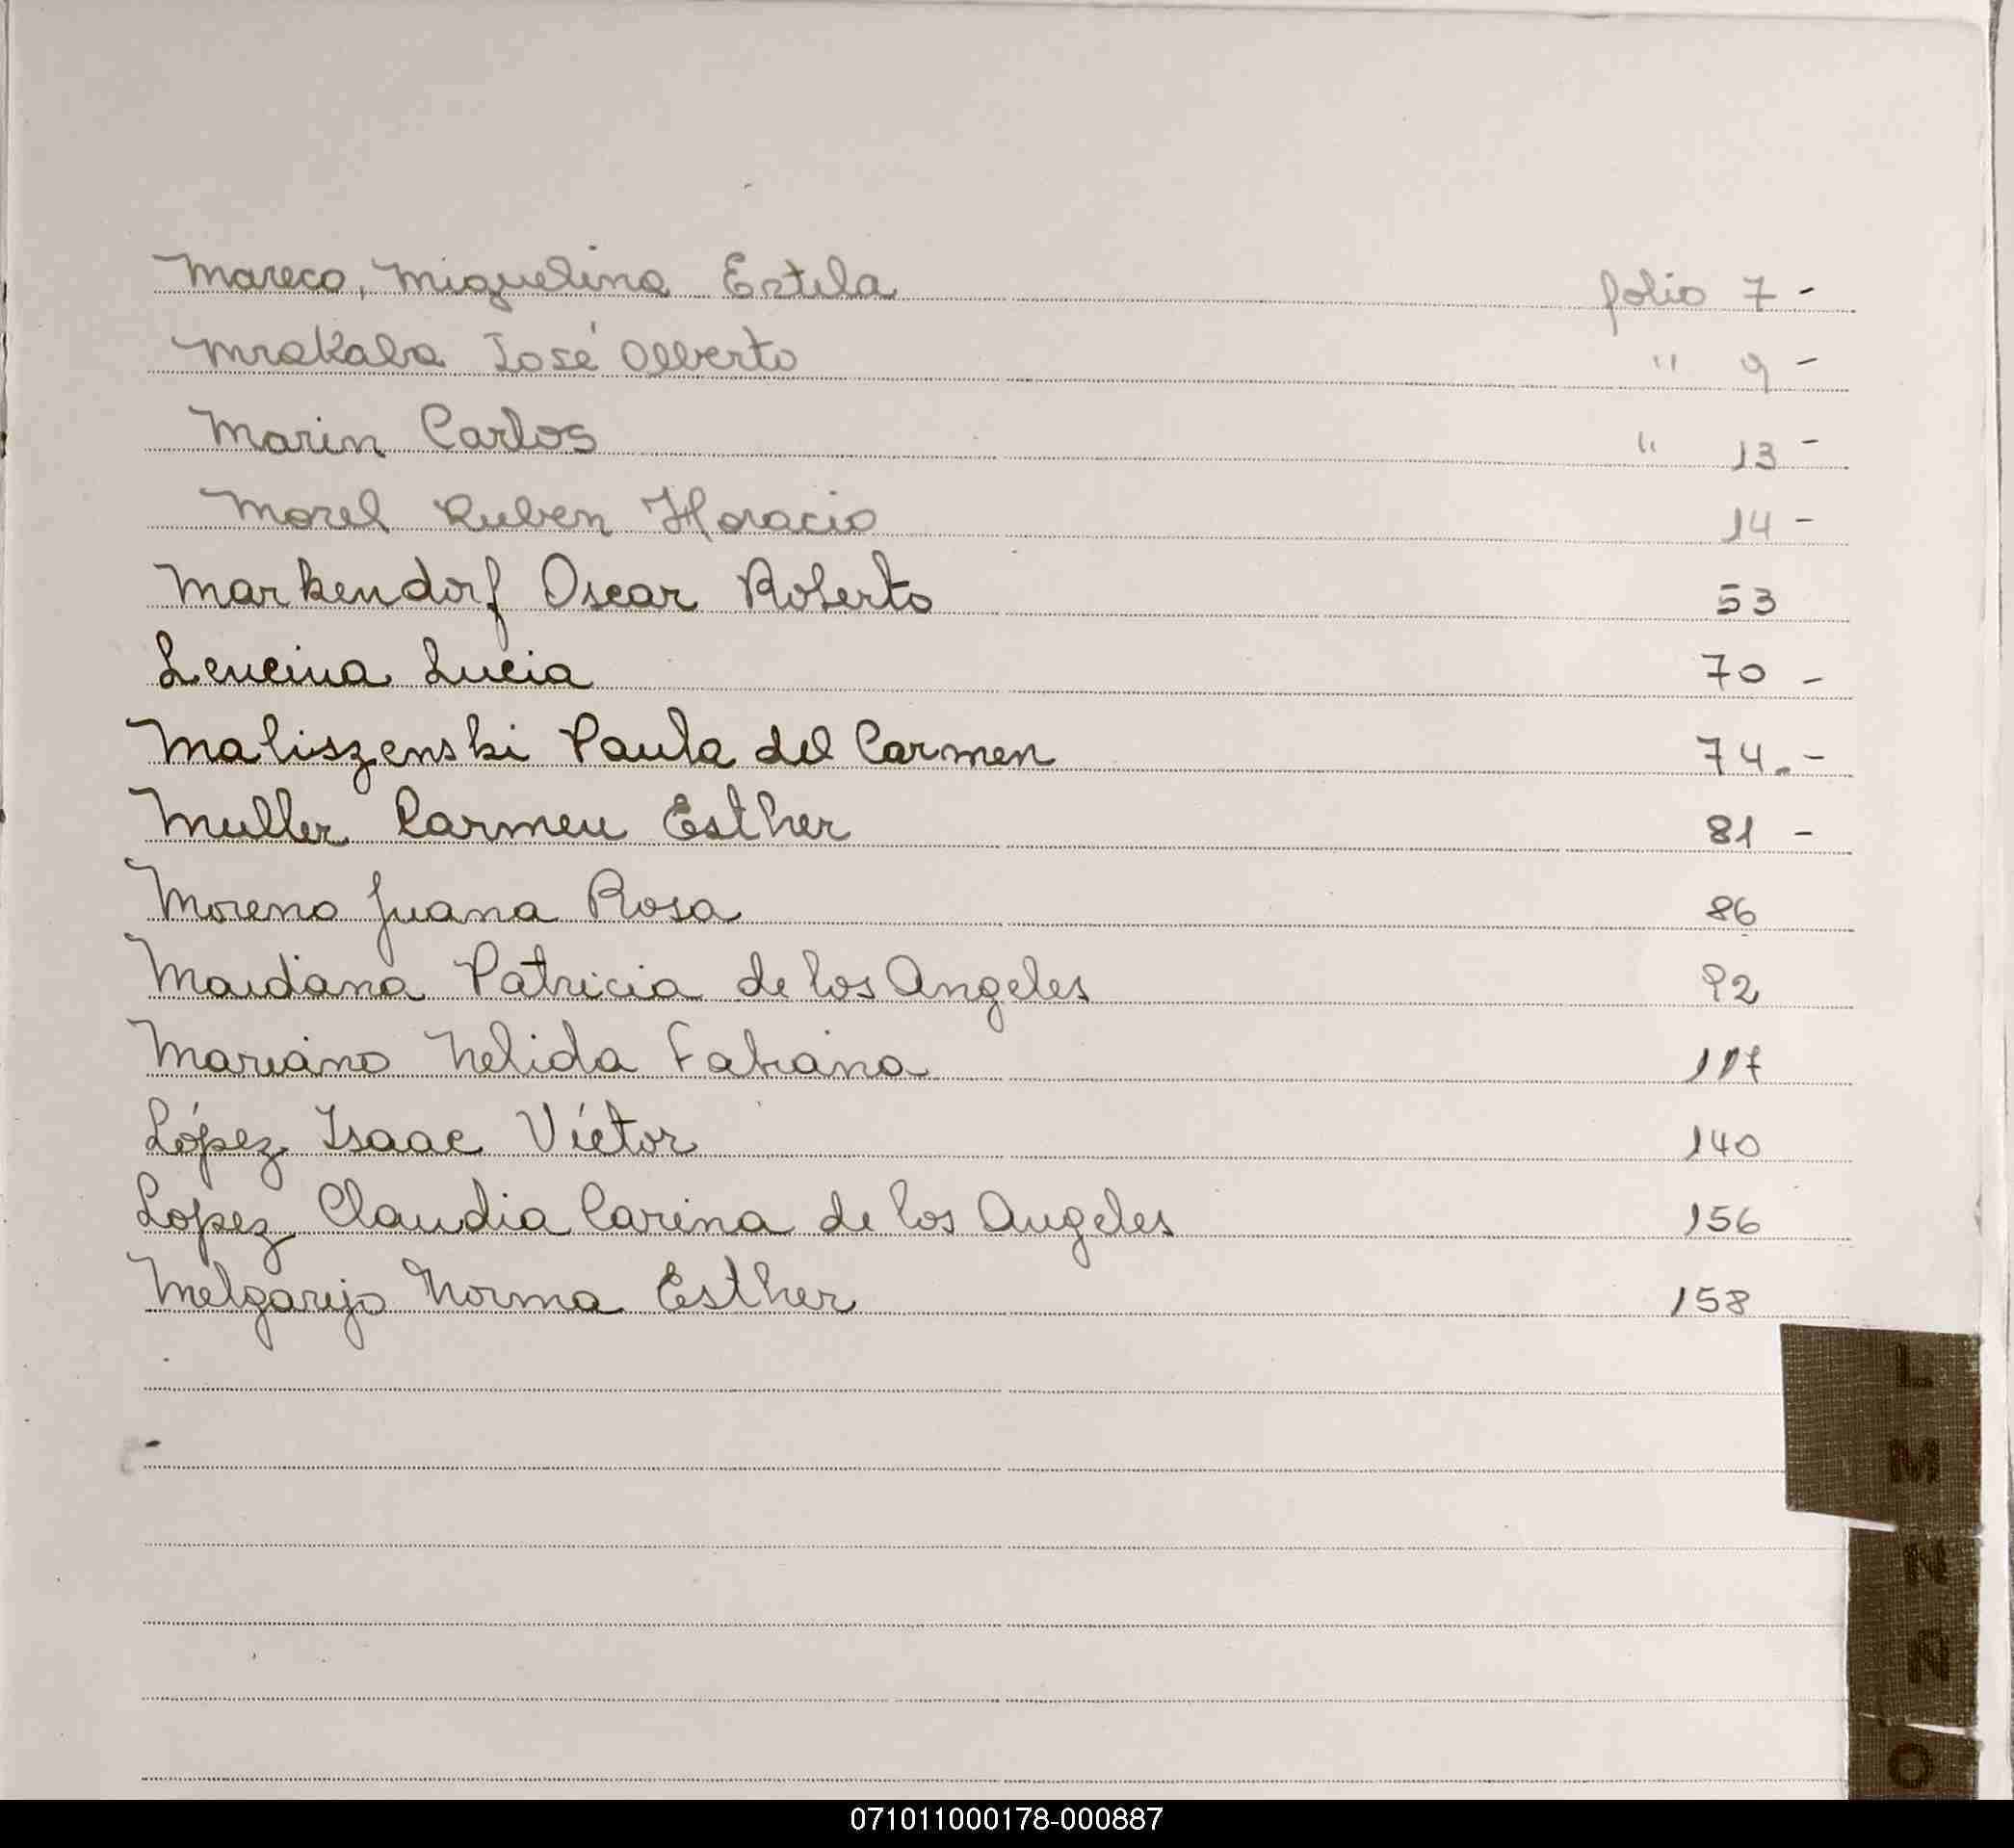 Mareco, Miguelina Estela folio 7 -
Mrakaba José Alberto " 9 -
Marin Carlos " 13 -
Morel Ruben Horacio 14 -
Markendorf Oscar Roberto 53
Lencina Lucia 70 -
Maliszenski Paula del Carmen 74. -
Muller Carmen Esther 81 -
Moreno Juana Rosa 86
Maidana Patricia de los Angeles 92
Mariano Nelida Fabiana 117
López Isaac Víctor 140
Lopez Claudia Carina de los Angeles 156
Melgarejo Norma Esther 158
L
M
N
Ñ
O
071011000178-000887